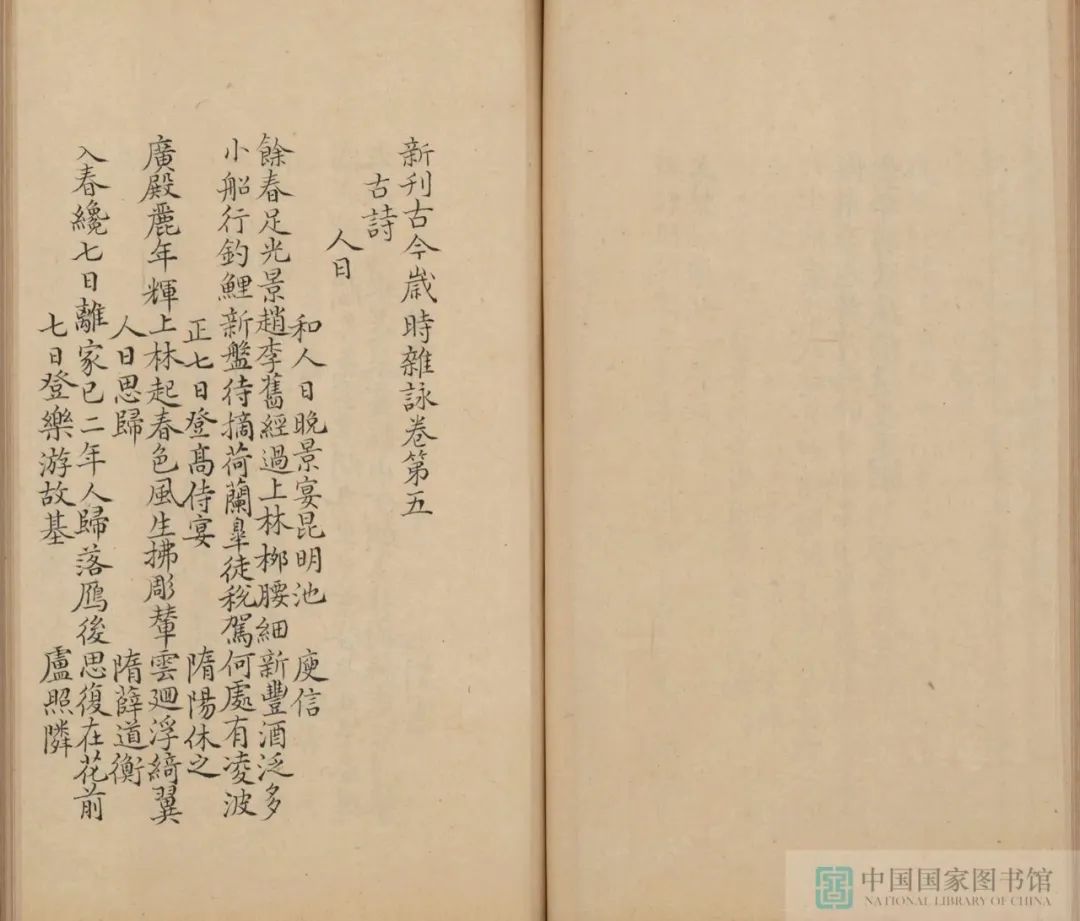 新刊古今歲時雜詠卷第五
古詩
人日
和人日晚景宴昆明池 庾信
餘春足光景趙李舊經過上林桞腰細新豐酒泛多
小船行釣鯉新盤待摘荷蘭皐徒稅駕何處有凌波
正七日登髙侍宴 隋陽休之
廣殿麗年輝上林起春色風生拂彫輦雲廻浮綺翼
人日思歸 隋薛道衡
入春纔七日離家已二年人歸落鴈後思復在花前
七日登樂游故基 盧照隣
中国国家图书馆
NATIONAL LIBRARY OF CHINA